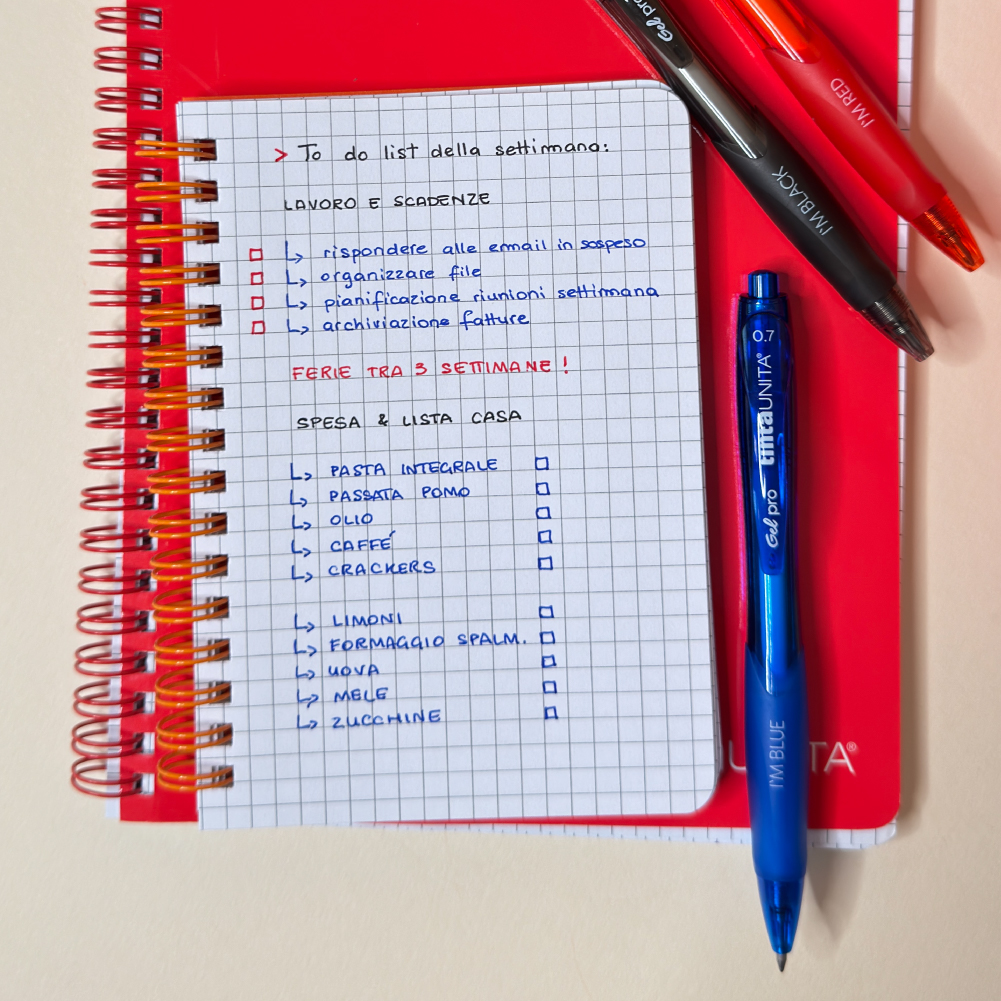 > To do list della settimana:
LAVORO E SCADENZE
↳ rispondere alle email in sospeso
↳ organizzare file
↳ pianificazione riunioni settimana
↳ archiviazione fatture
FERIE TRA 3 SETTIMANE !
SPESA & LISTA CASA
↳ PASTA INTEGRALE
↳ PASSATA POMO
↳ OLIO
↳ CAFFÉ
↳ CRACKERS
↳ LIMONI
↳ FORMAGGIO SPALM.
↳ UOVA
↳ MELE
↳ ZUCCHINE
Gel pro
I'M BLACK
I'M RED
0.7
Gel pro tintaUNITA®
I'M BLUE
U TA®